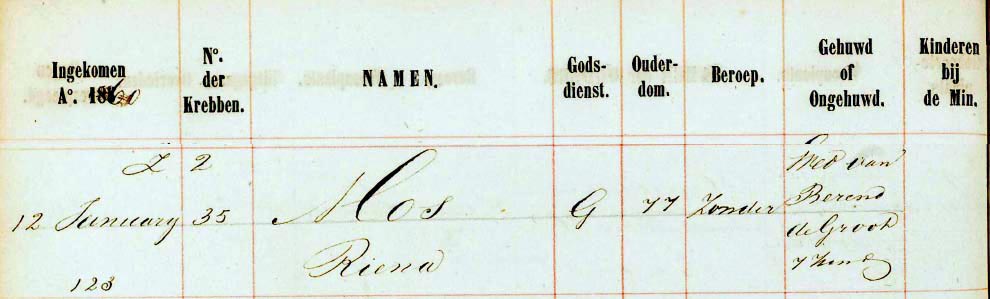 Ingekomen
A°. 1860
N°.
der
Krebben.
NAMEN.
Gods-
dienst.
Ouder-
dom.
Beroep.
Gehuwd
of
Ongehuwd.
Kinderen
bij
de Min.
Z 2
12 January 35 Mos G 77 Zonder Wed van
Berend
de Groot
Riena 7 kind
123